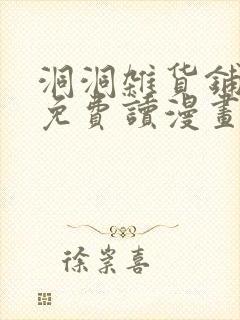 洞洞雜貨鋪
免費讀漫畫
徐崇喜